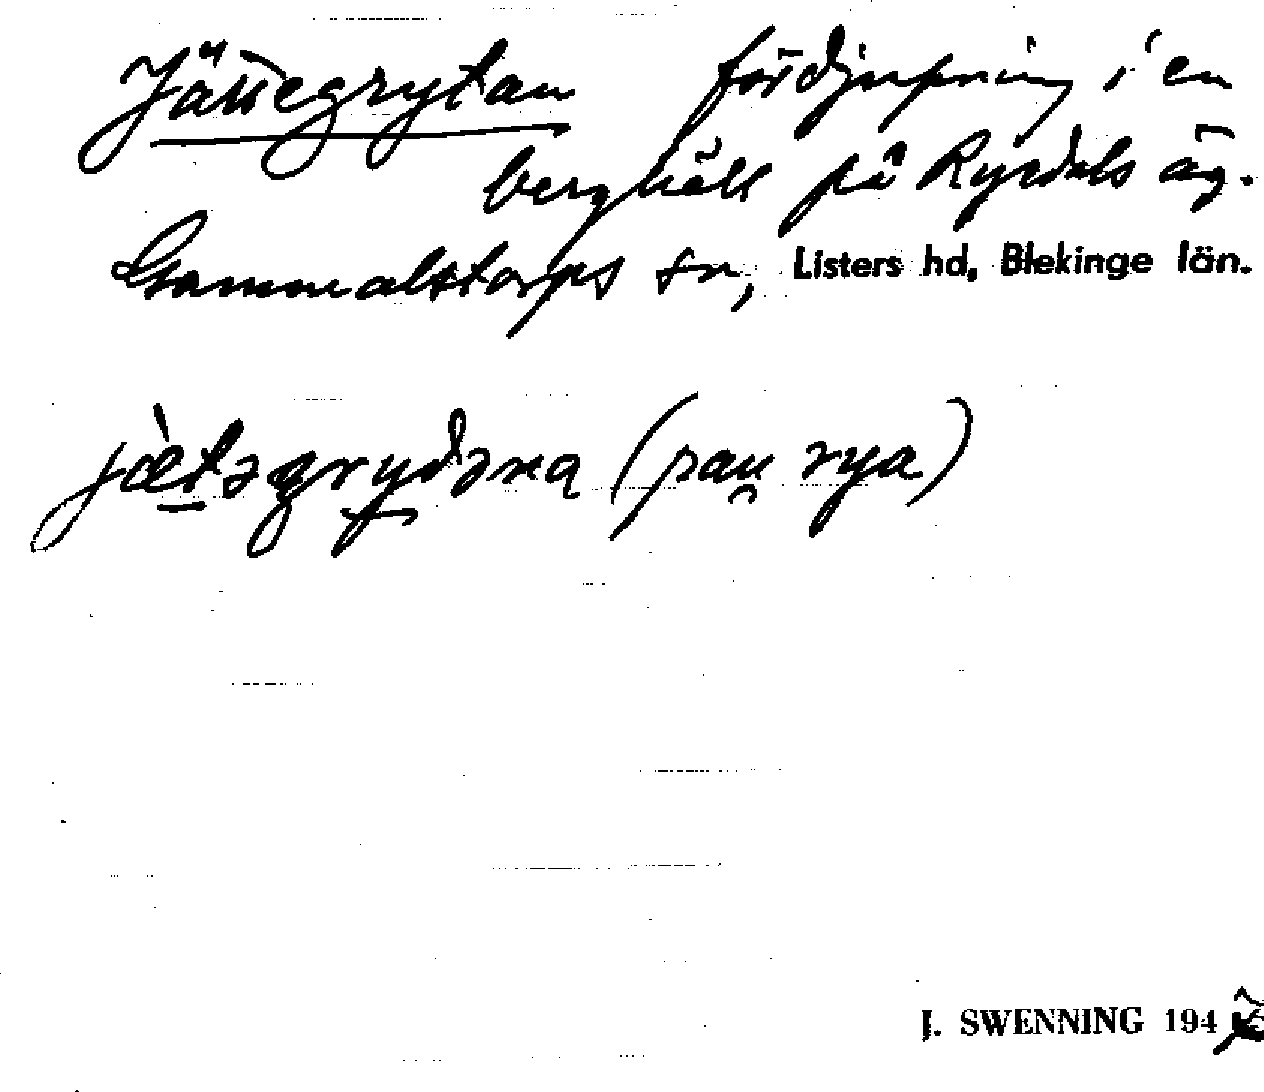 Jättegrytan fördjupning i en
berghäll på Rysdals äg.
Gammalstorps sn, Listers hd, Blekinge län.
jæ̀təgryđəna (pau rya)
J. SWENNING 194